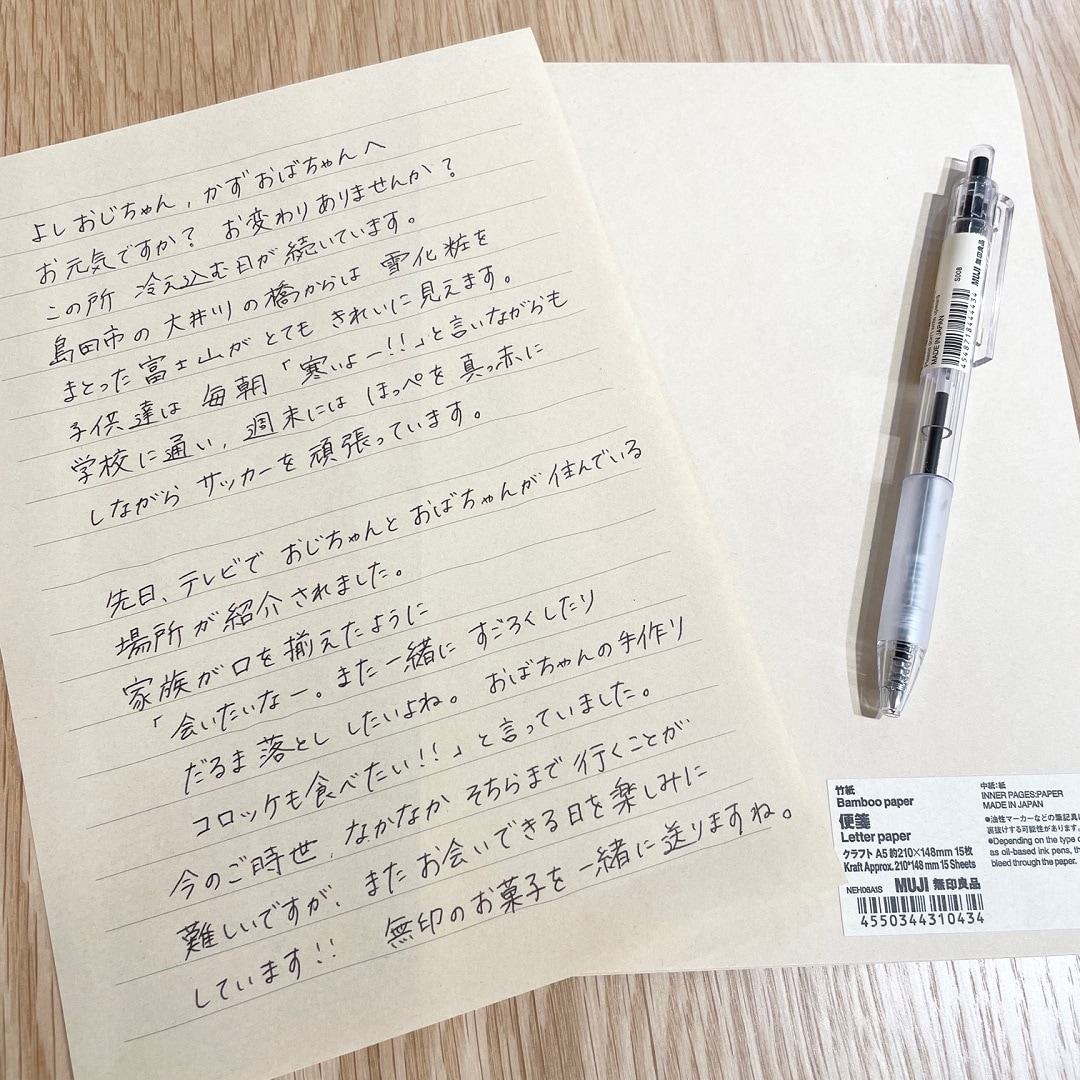 よしおじちゃん,かずおばちゃんへ
お元気ですか? お変わりありませんか?
この所 冷え込む日が続いています。
島田市の大井川の橋からは 雪化粧を
まとった富士山がとても きれいに見えます。
子供達は 毎朝「寒いよー!!」と言いながらも
学校に通い,週末には ほっぺを真っ赤に
しながら サッカーを頑張っています。
先日、テレビで おじちゃんと おばちゃんが住んでいる
場所が紹介されました。
家族が口を揃えたように
「会いたいなー。また一緒に すごろくしたり
だるま落とし したいよね。 おばちゃんの手作り
コロッケも食べたい!!」と言っていました。
今のご時世,なかなか そちらまで行くことが
難しいですが、またお会いできる日を楽しみに
しています!! 無印のお菓子を一緒に送りますね。
MUJI 無印良品
S008
MADE IN JAPAN
4548718444434
竹紙
Bamboo paper
便箋
Letter paper
クラフト A5 約210×148mm 15枚
Kraft Approx. 210*148 mm 15 Sheets
NEH06A1S MUJI 無印良品
4550344310434
中紙:紙
INNER PAGES:PAPER
MADE IN JAPAN
●油性マーカーなどの筆記具
裏抜けする可能性があります。
●Depending on the type
as oil-based ink pens,
bleed through the paper.